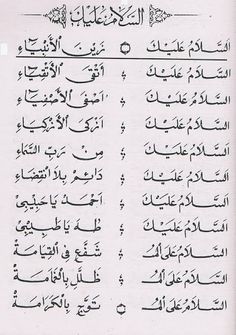 اَلسَّلَامُ عَلَيْكَ
اَلسَّلَامُ عَلَيْكَ زَيْنَ الْأَنْبِيَاءِ
اَلسَّلَامُ عَلَيْكَ أَتْقَى الْأَتْقِيَاءِ
اَلسَّلَامُ عَلَيْكَ أَصْفَى الْأَصْفِيَاءِ
اَلسَّلَامُ عَلَيْكَ أَزْكَى الْأَزْكِيَاءِ
اَلسَّلَامُ عَلَيْكَ مِنْ رَبِّ السَّمَاءِ
اَلسَّلَامُ عَلَيْكَ دَائِمْ بِلَا انْقِضَاءِ
اَلسَّلَامُ عَلَيْكَ أَحْمَدْ يَا حَبِيْبِيْ
اَلسَّلَامُ عَلَيْكَ طٰهَ يَا طَبِيْبِيْ
اَلسَّلَامُ عَلَى الْمُ شَفَّعِ فِي الْقِيَامَةْ
اَلسَّلَامُ عَلَى الْمُ ظَلَّلِ بِالْغَمَامَةْ
اَلسَّلَامُ عَلَى الْمُ تَوَّجِ بِالْكَرَامَةْ